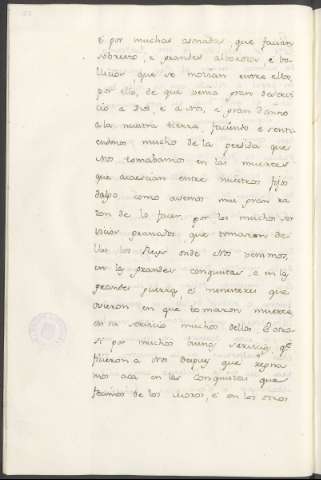 è por muchas asonadas que facian
sobresto, e grandes alborozos è bo-
llicios, que se movian entre ellos,
por ello, de que venia gran deservi-
cio a Dios, e à Nos, e gran daño
a la nuestra tierra, faciendo è senta
endonos mucho de la perdida que
Nos tomabamos en las muertes
que acaescian entre nuestros fijos
dalgo, como avemos muy gran ra-
zon de lo facer, por los muchos ser
vicios granados que tomaron de
llos los Reyes onde Nos venimos,
en las grandes conquistas, e en las
grandes guerras, è menesteres que
ovieron en que tomaron muerte
en su servicio muchos dellos. E otro
si por muchos buenos servicios, qe
ficieron a Nos despues que regna
mos aca en las conquistas que
fecimos de los moros, è en los otros